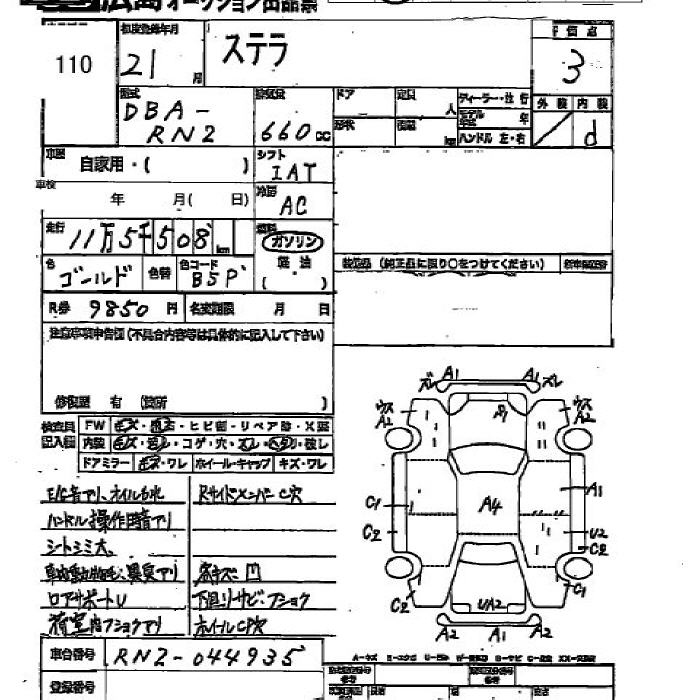 広島オークション出品票
110
初度登録年月
21 月
ステラ
評価点
3
外装 内装
d
型式
DBA-
RN2
排気量
660cc
ドア
定員
人
ディーラー・並行
モデル
年
ハンドル 左・右
形状
積載
km
車歴
自家用・( )
シフト
IAT
車検
年 月( 日)
冷房
AC
走行
11万5千508km
燃料
ガソリン
軽油
( )
色
ゴールド
色替
色コード
B5P
装備品 (純正品に限り○をつけてください)
R券 9850 円
名変期限 月 日
注意事項申告欄(不具合内容等は具体的に記入して下さい)
修復歴 有 (箇所 )
検査員
記入欄
FW キズ・飛石・ヒビ割・リペア跡・X要
内装 キズ・汚レ・コゲ・穴・スレ・ヘタリ・残し
ドアミラー キズ・ワレ
ホイール・キャップ キズ・ワレ
E/G音アリ、オイル台化
Rサイドメンバー C穴
ハンドル操作時音アリ
シートシミ大、
異臭アリ
小キズ・凹
ロアサポートU
下回リサビ・フショク
荷室内フショクアリ
ホイールC穴
ズレ A1 A1 ズレ
ウス
A2
ウス
A2
C1
A4
A1
C2
U2
C2
C2
UA2
C1
A2 A1 A2
車台番号 RN2-044935
登録番号